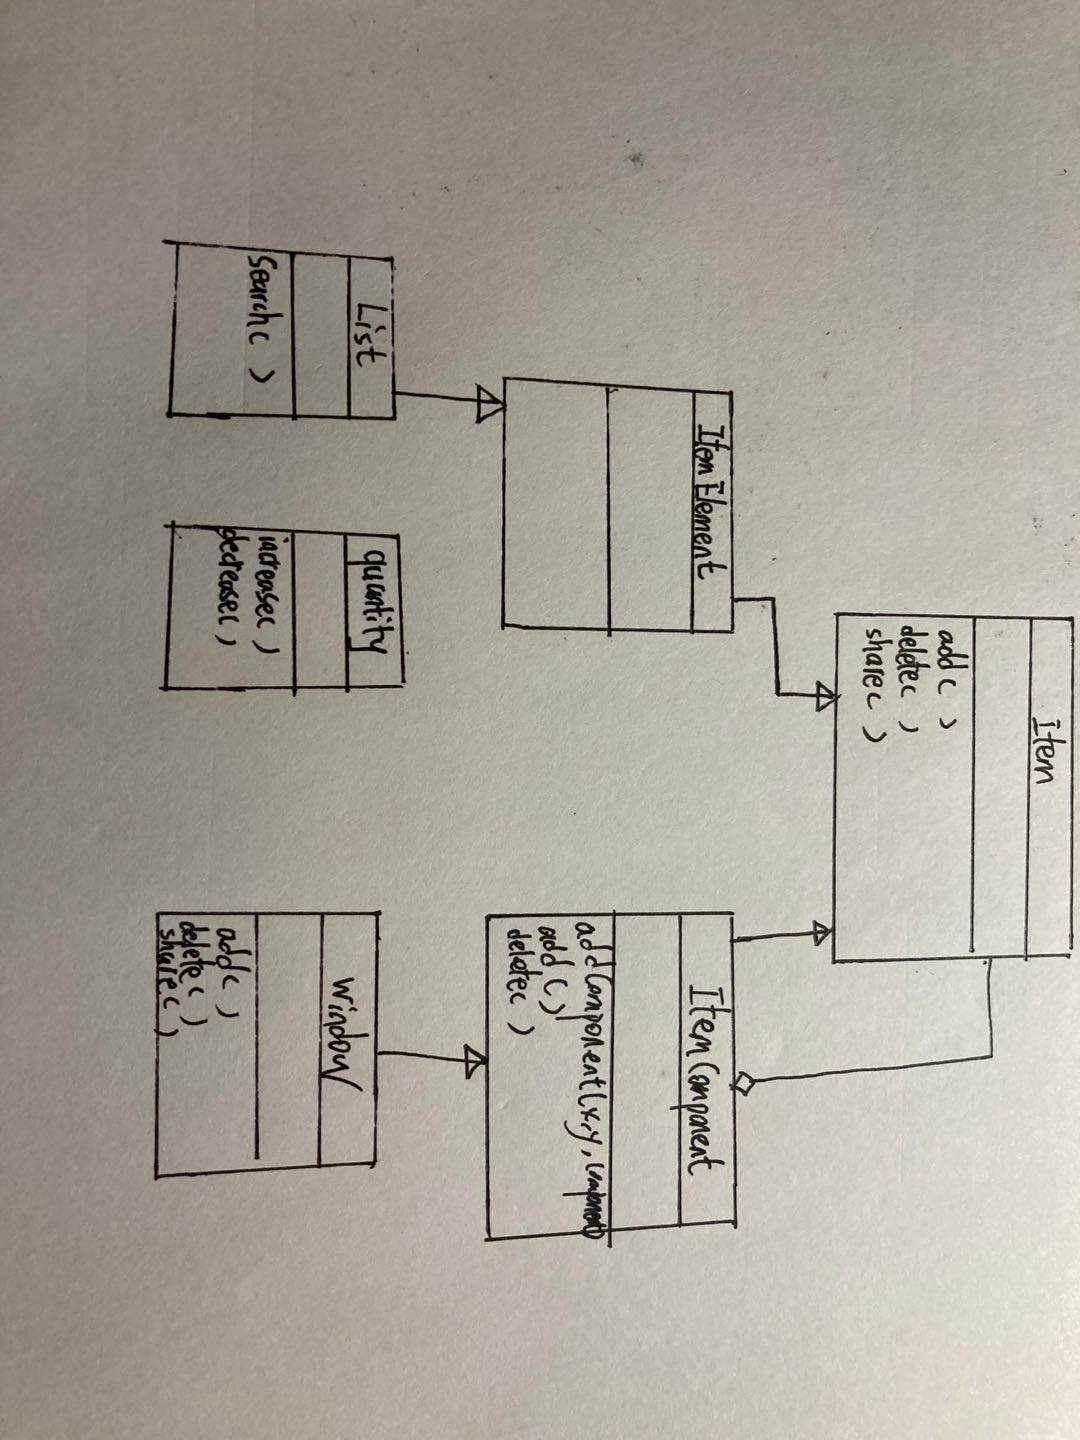 Item
add( )
delete( )
share( )
Item Element
Item Component
addComponent(x,y, component)
add( )
delete( )
List
search( )
quantity
increase( )
decrease( )
window
add( )
delete( )
share( )